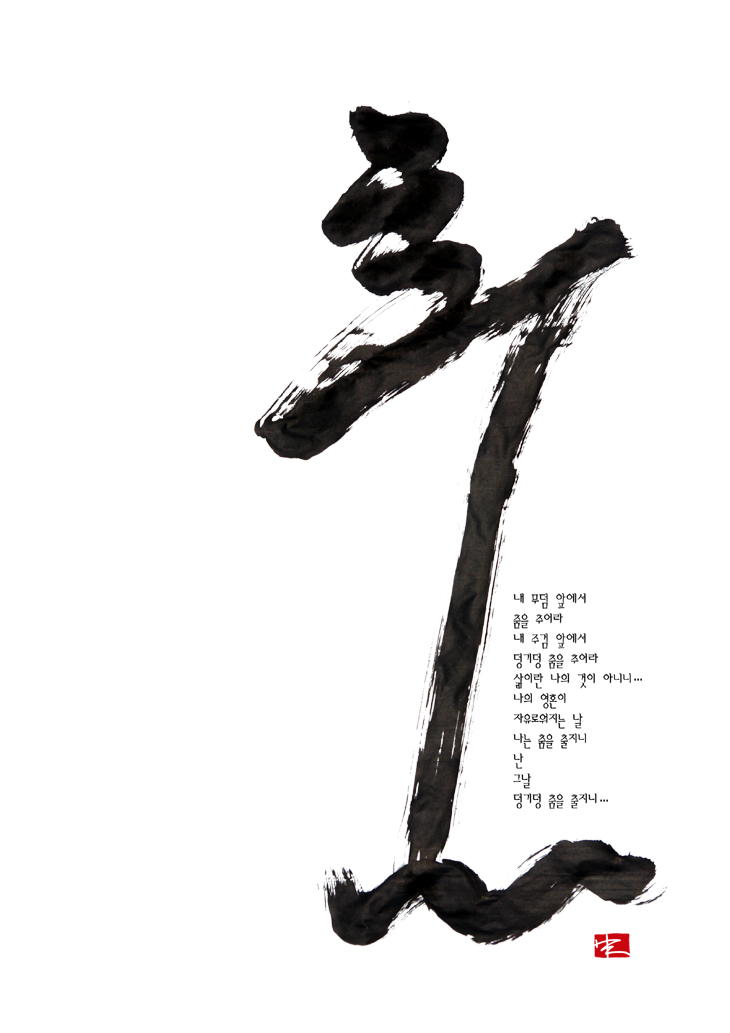 춤
내 무덤 앞에서
춤을 추어라
내 주검 앞에서
덩기덩 춤을 추어라
삶이란 나의 것이 아니니...
나의 영혼이
자유로워지는 날
나는 춤을 출지니
난
그날
덩기덩 춤을 출지니...